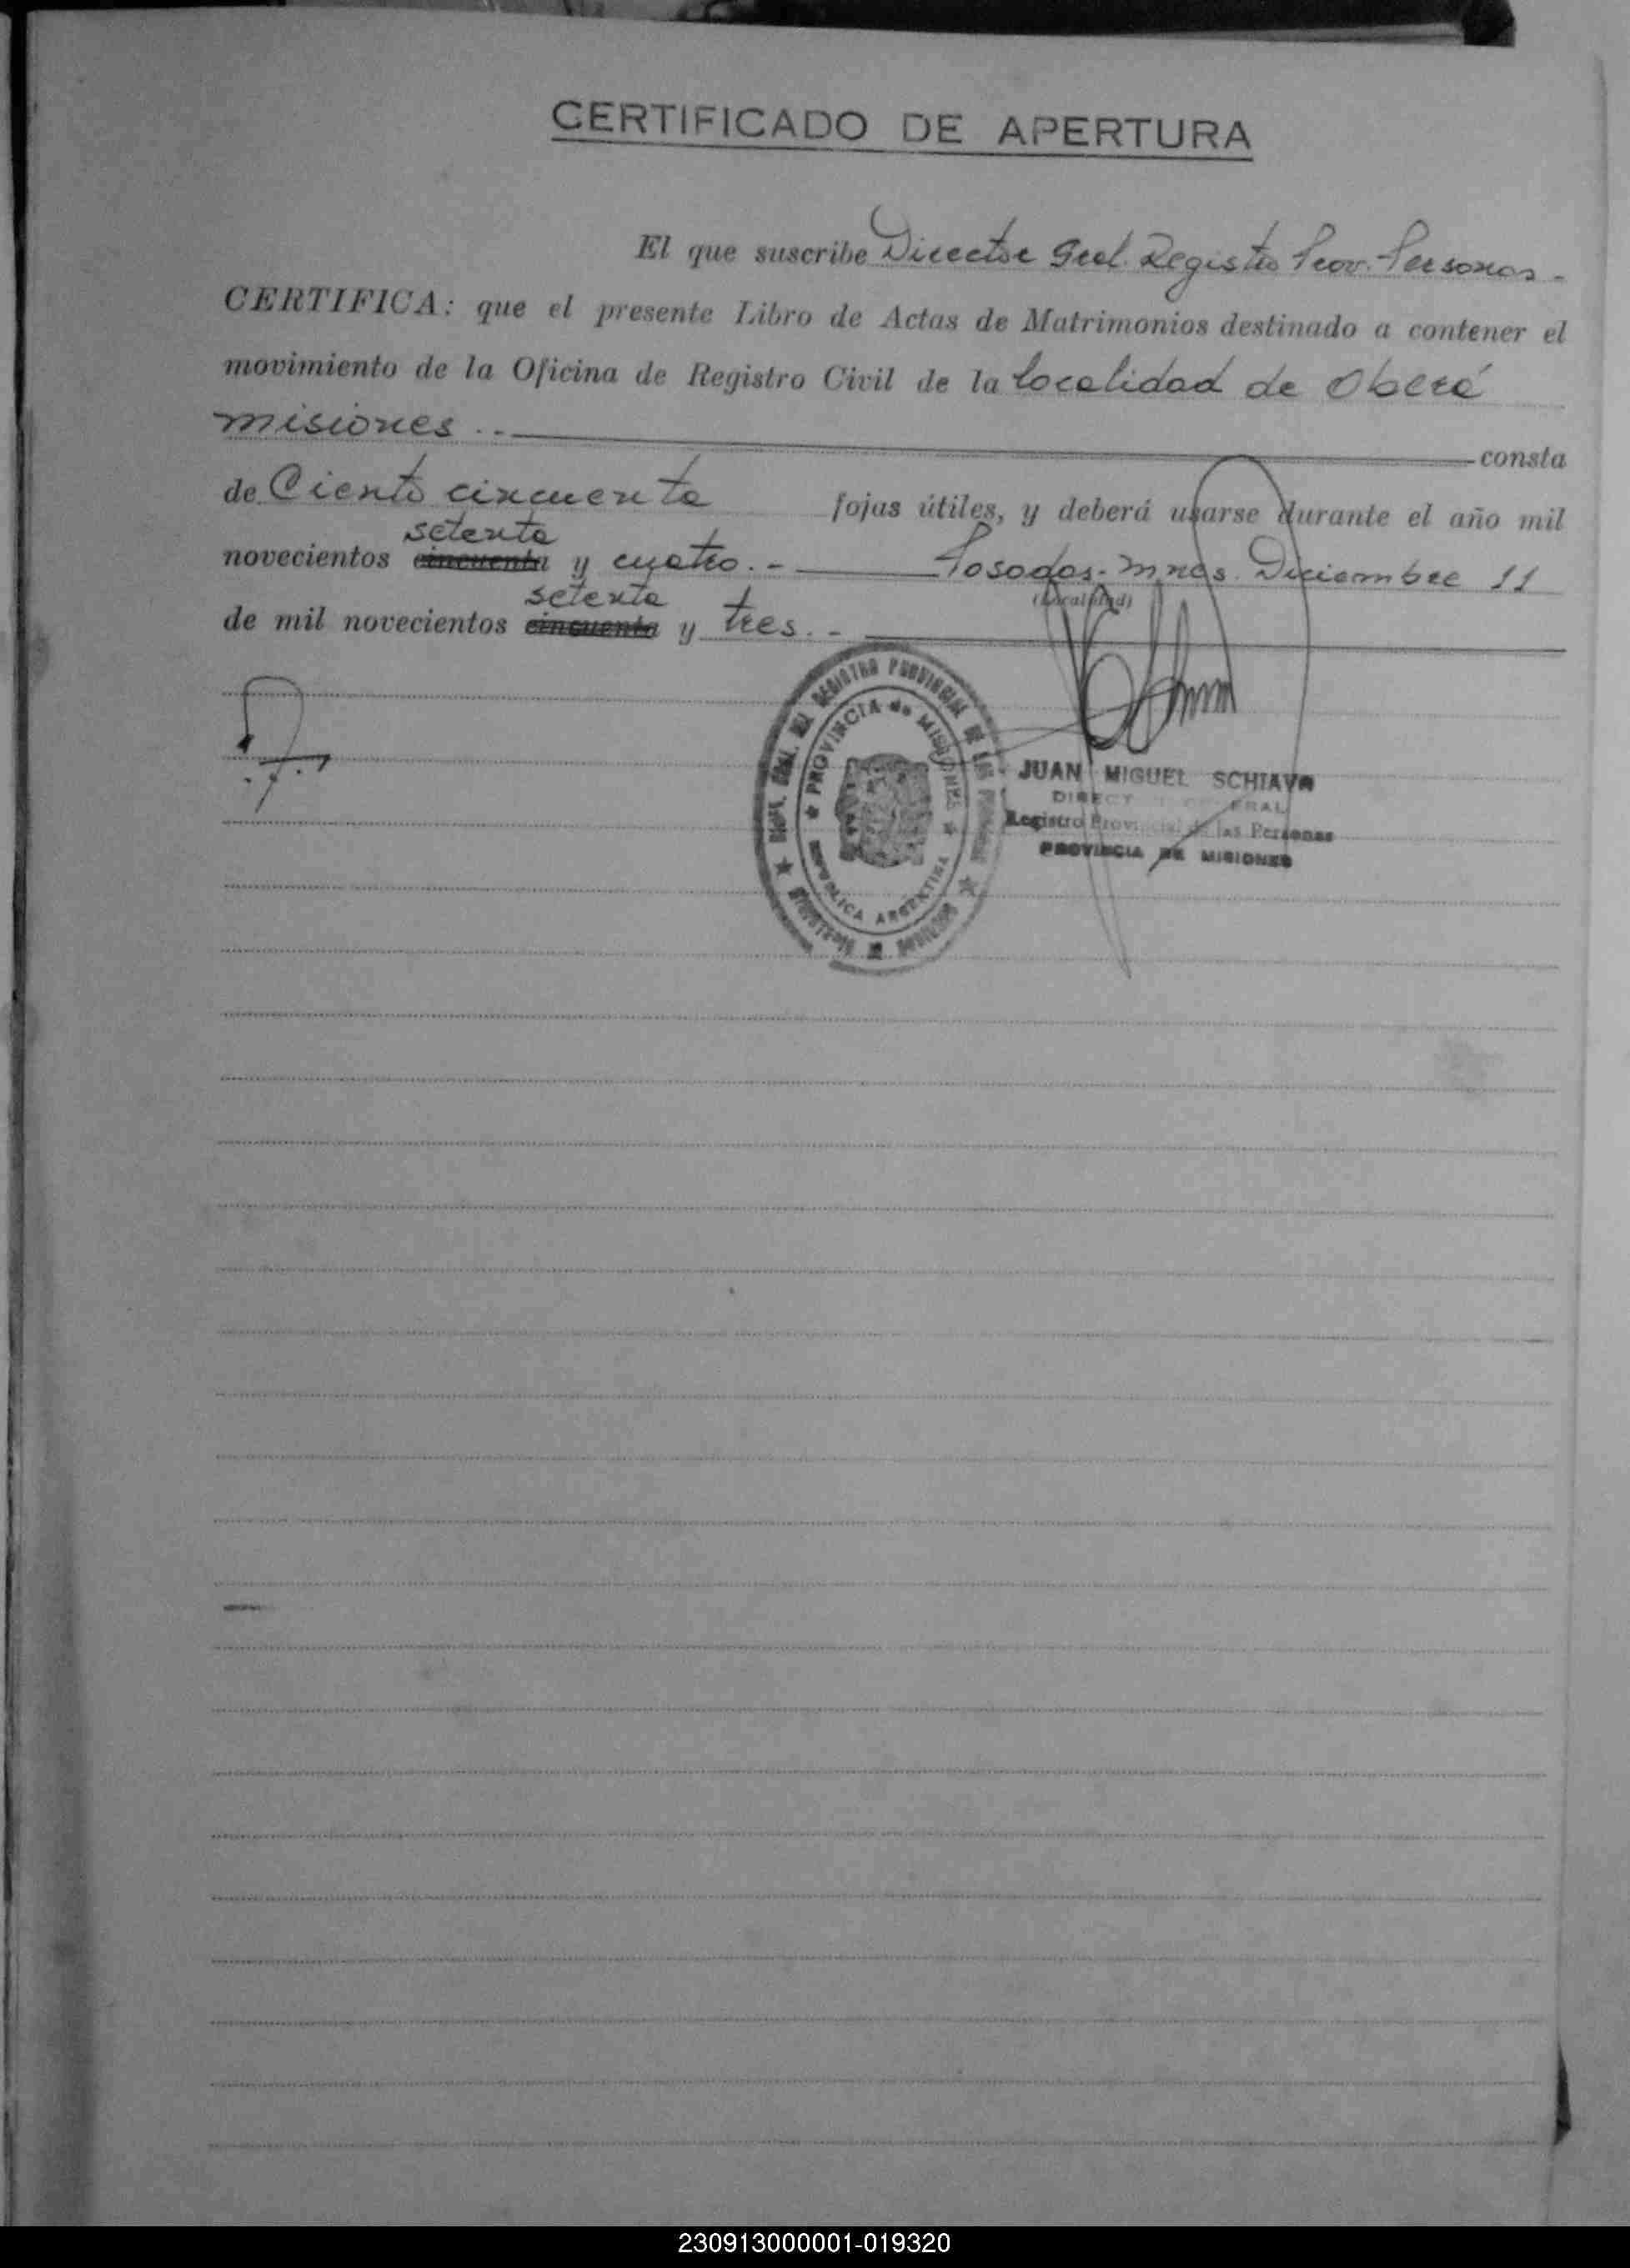 CERTIFICADO DE APERTURA
El que suscribe Director Gral. Registro Prov. Personas -
CERTIFICA: que el presente Libro de Actas de Matrimonios destinado a contener el
movimiento de la Oficina de Registro Civil de la localidad de Oberá
misiones .. consta
de Ciento cincuenta fojas útiles, y deberá usarse durante el año mil
setenta
novecientos cincuenta y cuatro. - Posadas - Mnes. Diciembre 11
(Localidad)
setenta
de mil novecientos cincuenta y tres. -
REGISTRO PROVINCIAL DE LAS
PROVINCIA de MISIONES
REPUBLICA ARGENTINA
JUAN MIGUEL SCHIAVO
DIRECTOR GENERAL
Registro Provincial de las Personas
PROVINCIA DE MISIONES
230913000001-019320